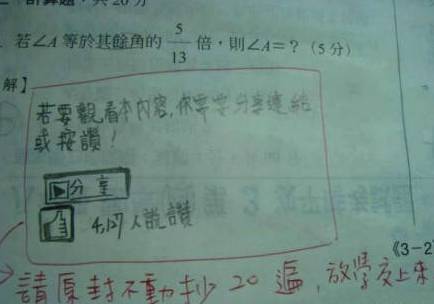 計算題，共20分
若∠A等於其餘角的 5/13 倍，則∠A=？（5分）
解】
若要觀看本內容，你需要分享連結
或按讚！
分享
4,127人說讚
《3-2
請原封不動抄20遍，放學交上來